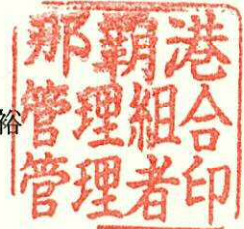 裕
那覇港
管理組合
管理者印